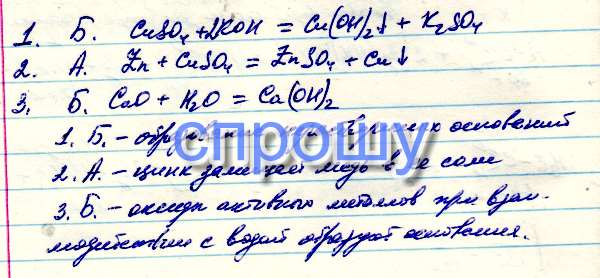 1. Б. CuSO₄ + 2KOH = Cu(OH)₂↓ + K₂SO₄
2. А. Zn + CuSO₄ = ZnSO₄ + Cu↓
3. Б. CaO + H₂O = Ca(OH)₂
1. Б. – оснований
2. А. – цинк замещает медь в её соли
3. Б. – оксиды активных металлов при взаи-
модействии с водой образуют основания.
спрошу